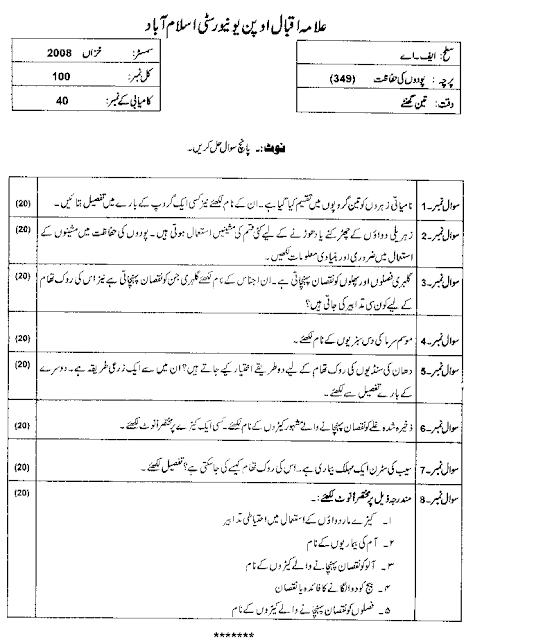 علامہ اقبال اوپن یونیورسٹی اسلام آباد
سطح: ایف۔اے
پرچہ: پودوں کی حفاظت (349)
وقت: تین گھنٹے
سمسٹر: خزاں 2008
کل نمبر: 100
کامیابی کے نمبر: 40
نوٹ:۔ پانچ سوال حل کریں۔
سوال نمبر۔1 نامیاتی زہروں کو تین گروپوں میں تقسیم کیا گیا ہے۔ ان کے نام لکھئے نیز کسی ایک گروپ کے بارے میں تفصیل بتائیں۔ (20)
سوال نمبر۔2 زہریلی دواؤں کے چھڑکنے یا دھوڑنے کے لیے کئی قسم کی مشینیں استعمال ہوتی ہیں۔ پودوں کی حفاظت میں مشینوں کے (20)
استعمال میں ضروری اور بنیادی معلومات لکھیں۔
سوال نمبر۔3 گلہری فصلوں اور پھلوں کو نقصان پہنچاتی ہے۔ ان اجناس کے نام لکھئے گلہری جن کو نقصان پہنچاتی ہے نیز اس کی روک تھام (20)
کے لیے کون سی تدابیر کی جاتی ہیں؟
سوال نمبر۔4 موسم سرما کی دس سبزیوں کے نام لکھئے۔ (20)
سوال نمبر۔5 دھان کی سنڈیوں کی روک تھام کے لیے دو طریقے اختیار کیے جاتے ہیں؟ ان میں سے ایک زرعی طریقہ ہے۔ دوسرے (20)
کے بارے تفصیل سے لکھئے۔
سوال نمبر۔6 ذخیرہ شدہ غلے کو نقصان پہنچانے والے مشہور کیڑوں کے نام لکھئے۔ کسی ایک کیڑے پر مختصراً نوٹ لکھئے۔ (20)
سوال نمبر۔7 سیب کی سڑن ایک مہلک بیماری ہے۔ اس کی روک تھام کیسے کی جاسکتی ہے؟ تفصیل لکھئے۔ (20)
سوال نمبر۔8 مندرجہ ذیل پر مختصراً نوٹ لکھئے:۔ (20)
۱۔ کیڑے مار دواؤں کے استعمال میں احتیاطی تدابیر
۲۔ آم کی بیماریوں کے نام
۳۔ آلو کو نقصان پہنچانے والے کیڑوں کے نام
۴۔ بیج کو دوا لگانے کا فائدہ یا نقصان
۵۔ فصلوں کو نقصان پہنچانے والے کیڑوں کے نام
*******